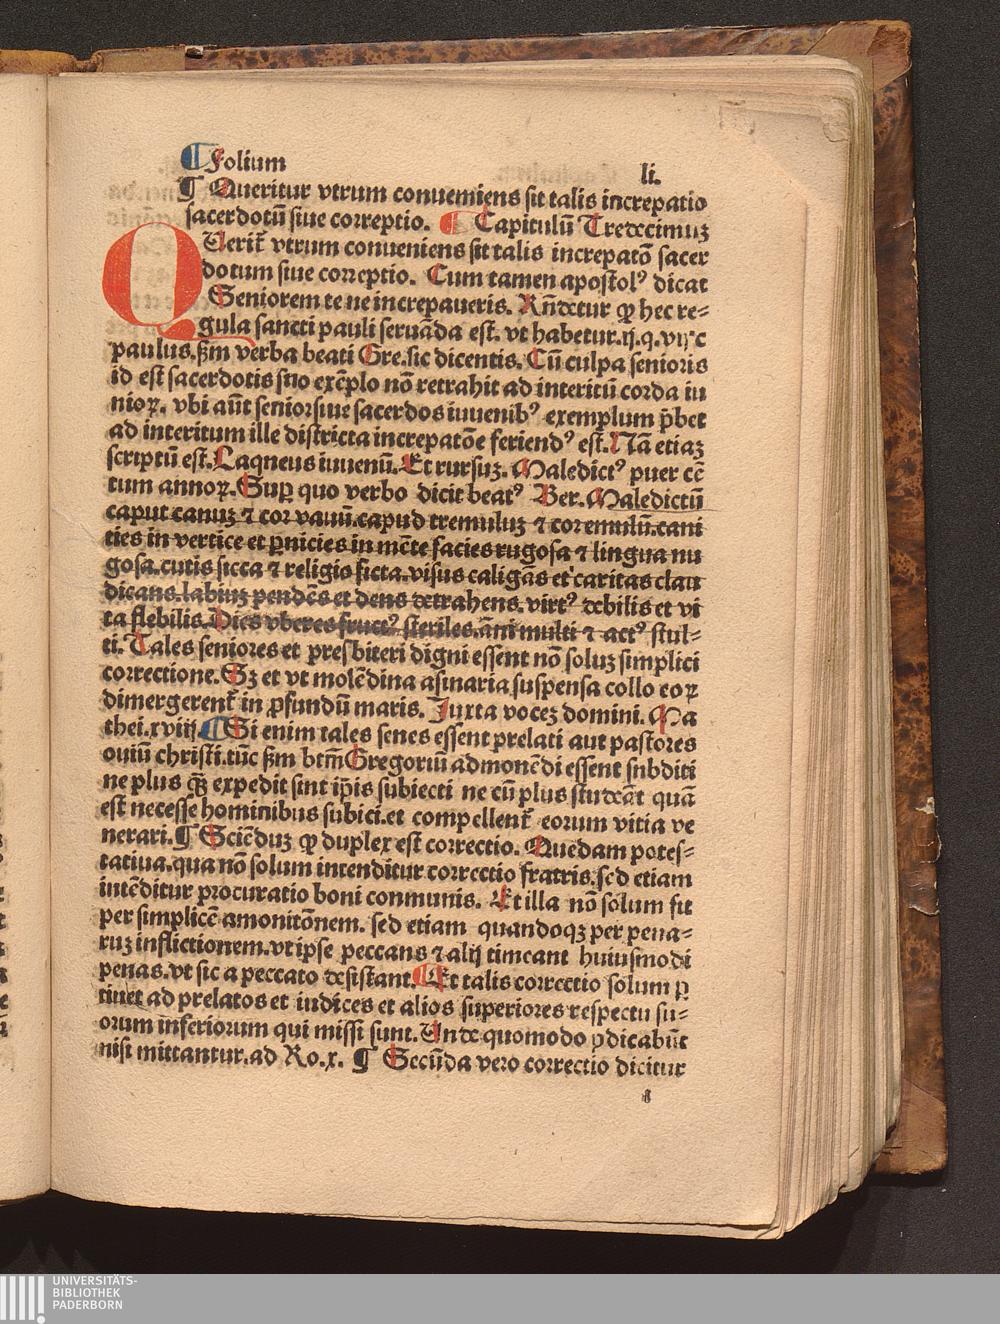 ¶ Folium li.
¶ Queritur vtrum conuemiens sit talis increpatio
sacerdotū siue correptio. ¶ Capitulū Tredecimuȝ
QUerit᷑ vtrum conueniens sit talis increpatō sacer
dotum siue correptio. Cum tamen apostolꝰ dicat
Seniorem te ne increpaueris. Rn̄detur ꝙ hec re⸗
gula sancti pauli seruāda est. vt habetur. ij. q. vij c
paulus. ẜm verba beati Gre. sic dicentis. Cū culpa senioris
id est sacerdotis suo exēplo nō retrahit ad interitū corda iu
nioꝝ. vbi aūt senior siue sacerdos iuuenibꝰ exemplum p̄bet
ad interitum ille districta increpatōe feriendꝰ est. Nā etiaȝ
scriptū est. Laqneus iuuenū. Et rursuȝ. Maledictꝰ puer cē
tum annoꝝ. Suꝑ quo verbo dicit beatꝰ Ber. Maledictū
caput canuȝ ⁊ cor vanū. capud tremuluȝ ⁊ cor emulū. cani
ties in vertice et ꝑnicies in mēte facies rugosa ⁊ lingua nu
gosa. cutis sicca ⁊ religio ficta. visus caligās et caritas clau
dicans. labiuȝ pendēs et dens detrahens. virtꝰ debilis et vi
ta flebilis. Dies vberes fructꝰ steriles. āni multi ⁊ actꝰ stul⸗
ti. Tales seniores et presbiteri digni essent nō soluȝ simplici
correctione. Sȝ et vt molēdina asinaria suspensa collo eoꝝ
dimergerent᷑ in ꝓfundū maris. Juxta voceȝ domini. Ma
thei. xviij. ¶ Si enim tales senes essent prelati aut pastores
ouiū christi. tūc ẜm btm̄ Gregoriū admonēdi essent snbditi
ne plus ꝙ̄ expedit sint ip̄is subiecti ne cū plus studeāt quā
est necesse hominibus subici. et compellent᷑ eorum vitia ve
nerari. ¶ Sciēduȝ ꝙ duplex est correctio. Quedam potes⸗
tatiua. qua nō solum intenditur correctio fratris. sed etiam
intēditur procuratio boni conmunis. Et illa nō solum fit
per simplicē amonitōnem. sed etiam quandoqȝ per pena⸗
ruȝ inflictionem. vt ipse peccans ⁊ alij timeant huiusmodi
penas. vt sic a peccato desistant. ¶ Et talis correctio solum ꝑ
tinet ad prelatos et iudices et alios superiores respectu su⸗
orum inferiorum qui missi sunt. Unde quomodo p̄dicabūt
nisi mittantur. ad Ro. x. ¶ Secūda vero correctio dicitur
UNIVERSITÄTS-
BIBLIOTHEK
PADERBORN